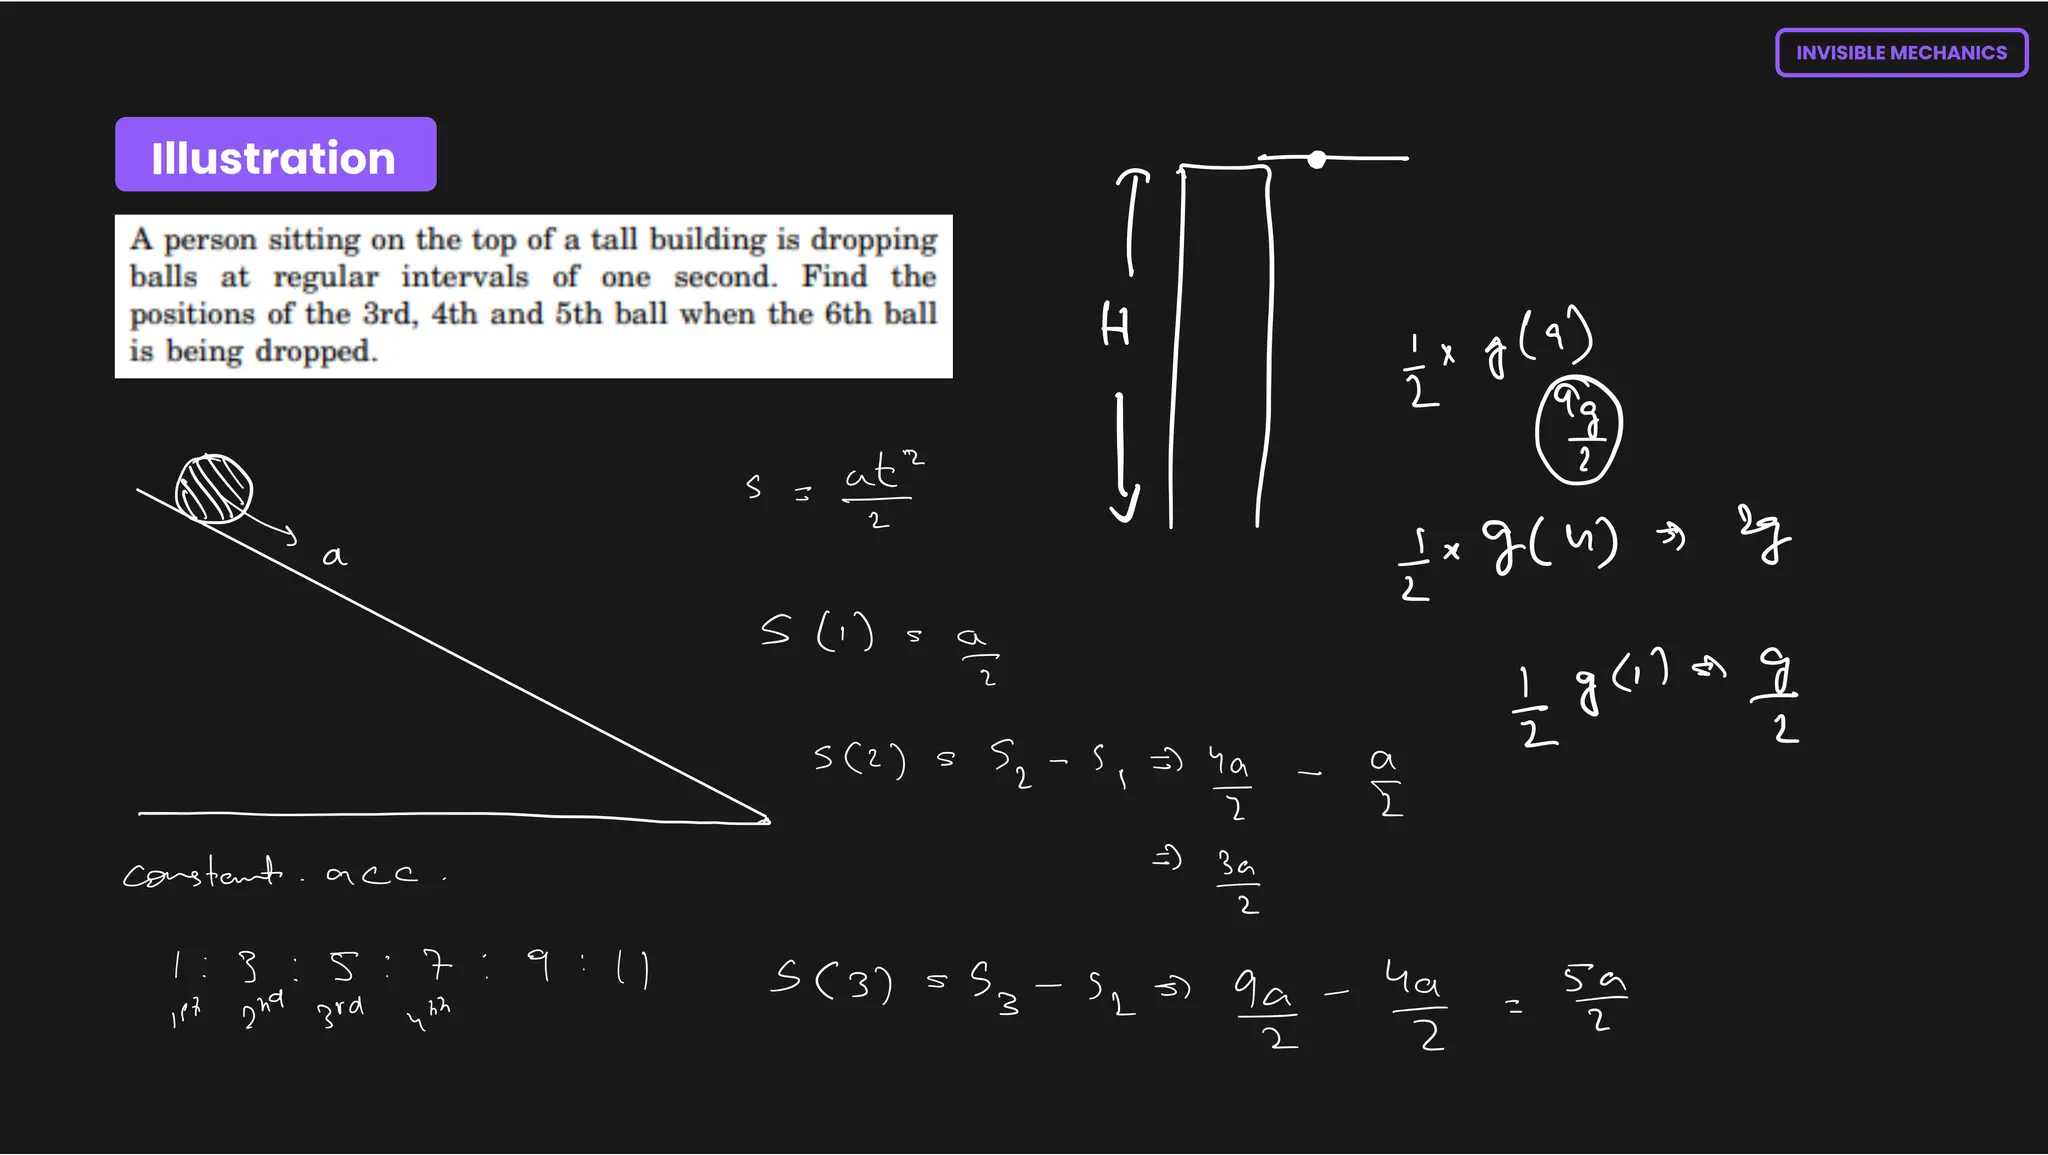 INVISIBLE MECHANICS
Illustration
A person sitting on the top of a tall building is dropping
balls at regular intervals of one second. Find the
positions of the 3rd, 4th and 5th ball when the 6th ball
is being dropped.
H
1/2 × g(9)
9g/2
1/2 × g(4) ⇒ 2g
1/2 g(1) ⇒ g/2
a
s = at²/2
S(1) = a/2
S(2) = S₂ - S₁ ⇒ 4a/2 - a/2
⇒ 3a/2
S(3) = S₃ - S₂ ⇒ 9a/2 - 4a/2 = 5a/2
constant. acc.
1 : 3 : 5 : 7 : 9 : 11
1st 2nd 3rd 4th